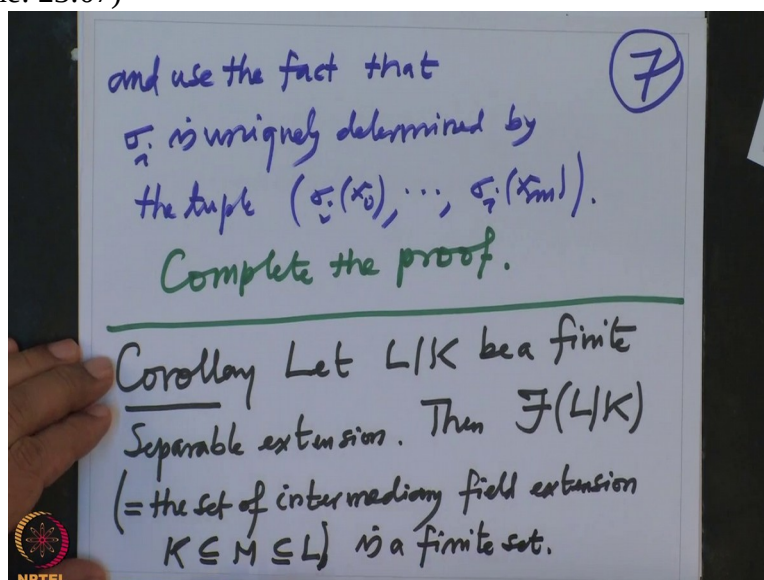 23:07)
7
and use the fact that
σᵢ is uniquely determined by
the tuple (σᵢ(x₀), ⋯, σᵢ(xₘ)).
Complete the proof.
Corollary Let L|K be a finite
Separable extension. Then ℱ(L|K)
(= the set of intermediary field extension
K ⊆ M ⊆ L) is a finite set.
NPTEL